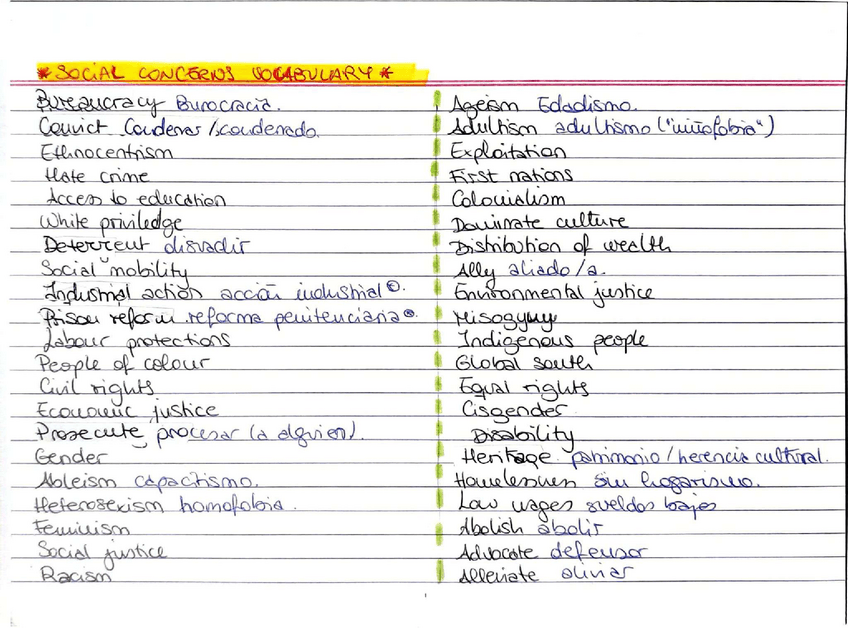 * SOCIAL CONCERNS VOCABULARY *
Bureaucracy Burocracia.
Convict Condenar / condenado.
Ethnocentrism
Hate crime
Access to education
White priviledge
Deterrent disuadir
Social mobility
Industrial action acción industrial
Prison reform reforma penitenciaria
Labour protections
People of colour
Civil rights
Economic justice
Prosecute procesar (a alguien).
Gender
Ableism capacitismo.
Heterosexism homofobia.
Feminism
Social justice
Racism
Ageism Edadismo.
Adultism adultismo ("niñofobia")
Exploitation
First nations
Colonialism
Dominate culture
Distribution of wealth
Ally aliado/a.
Environmental justice
Misogyny
Indigenous people
Global south
Equal rights
Cisgender
Disability
Heritage patrimonio / herencia cultural.
Homelessnes sin hogarismo.
Low wages sueldos bajos
Abolish abolir
Advocate defensor
Alleviate aliviar